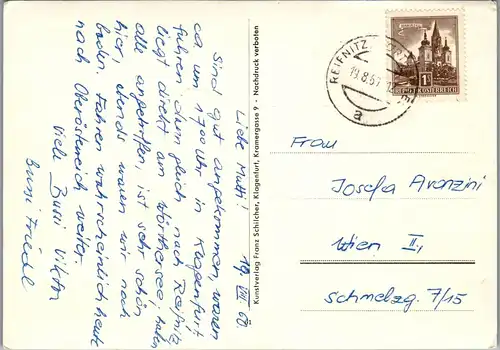 19 VIII 60
Liebe Mutti!
Sind gut angekommen, waren
ca um 17 00 Uhr in Klagenfurt,
fuhren dann gleich nach Reifnitz
liegt direkt am Wörthersee, haben
alle angetroffen, ist sehr schön
hier, abends waren wir noch
baden. Fahren wahrscheinlich heute
nach Oberösterreich weiter.
Viele Bussi Viktor
Bussi Friedl
Kunstverlag Franz Schilcher, Klagenfurt, Kramergasse 9 · Nachdruck verboten
REIFNITZ
19.8.6
a
MARIAZELL
1 S
REPUBLIK ÖSTERREICH
Frau
Josefa Avanzini
Wien II,
Schmelzg. 7/15